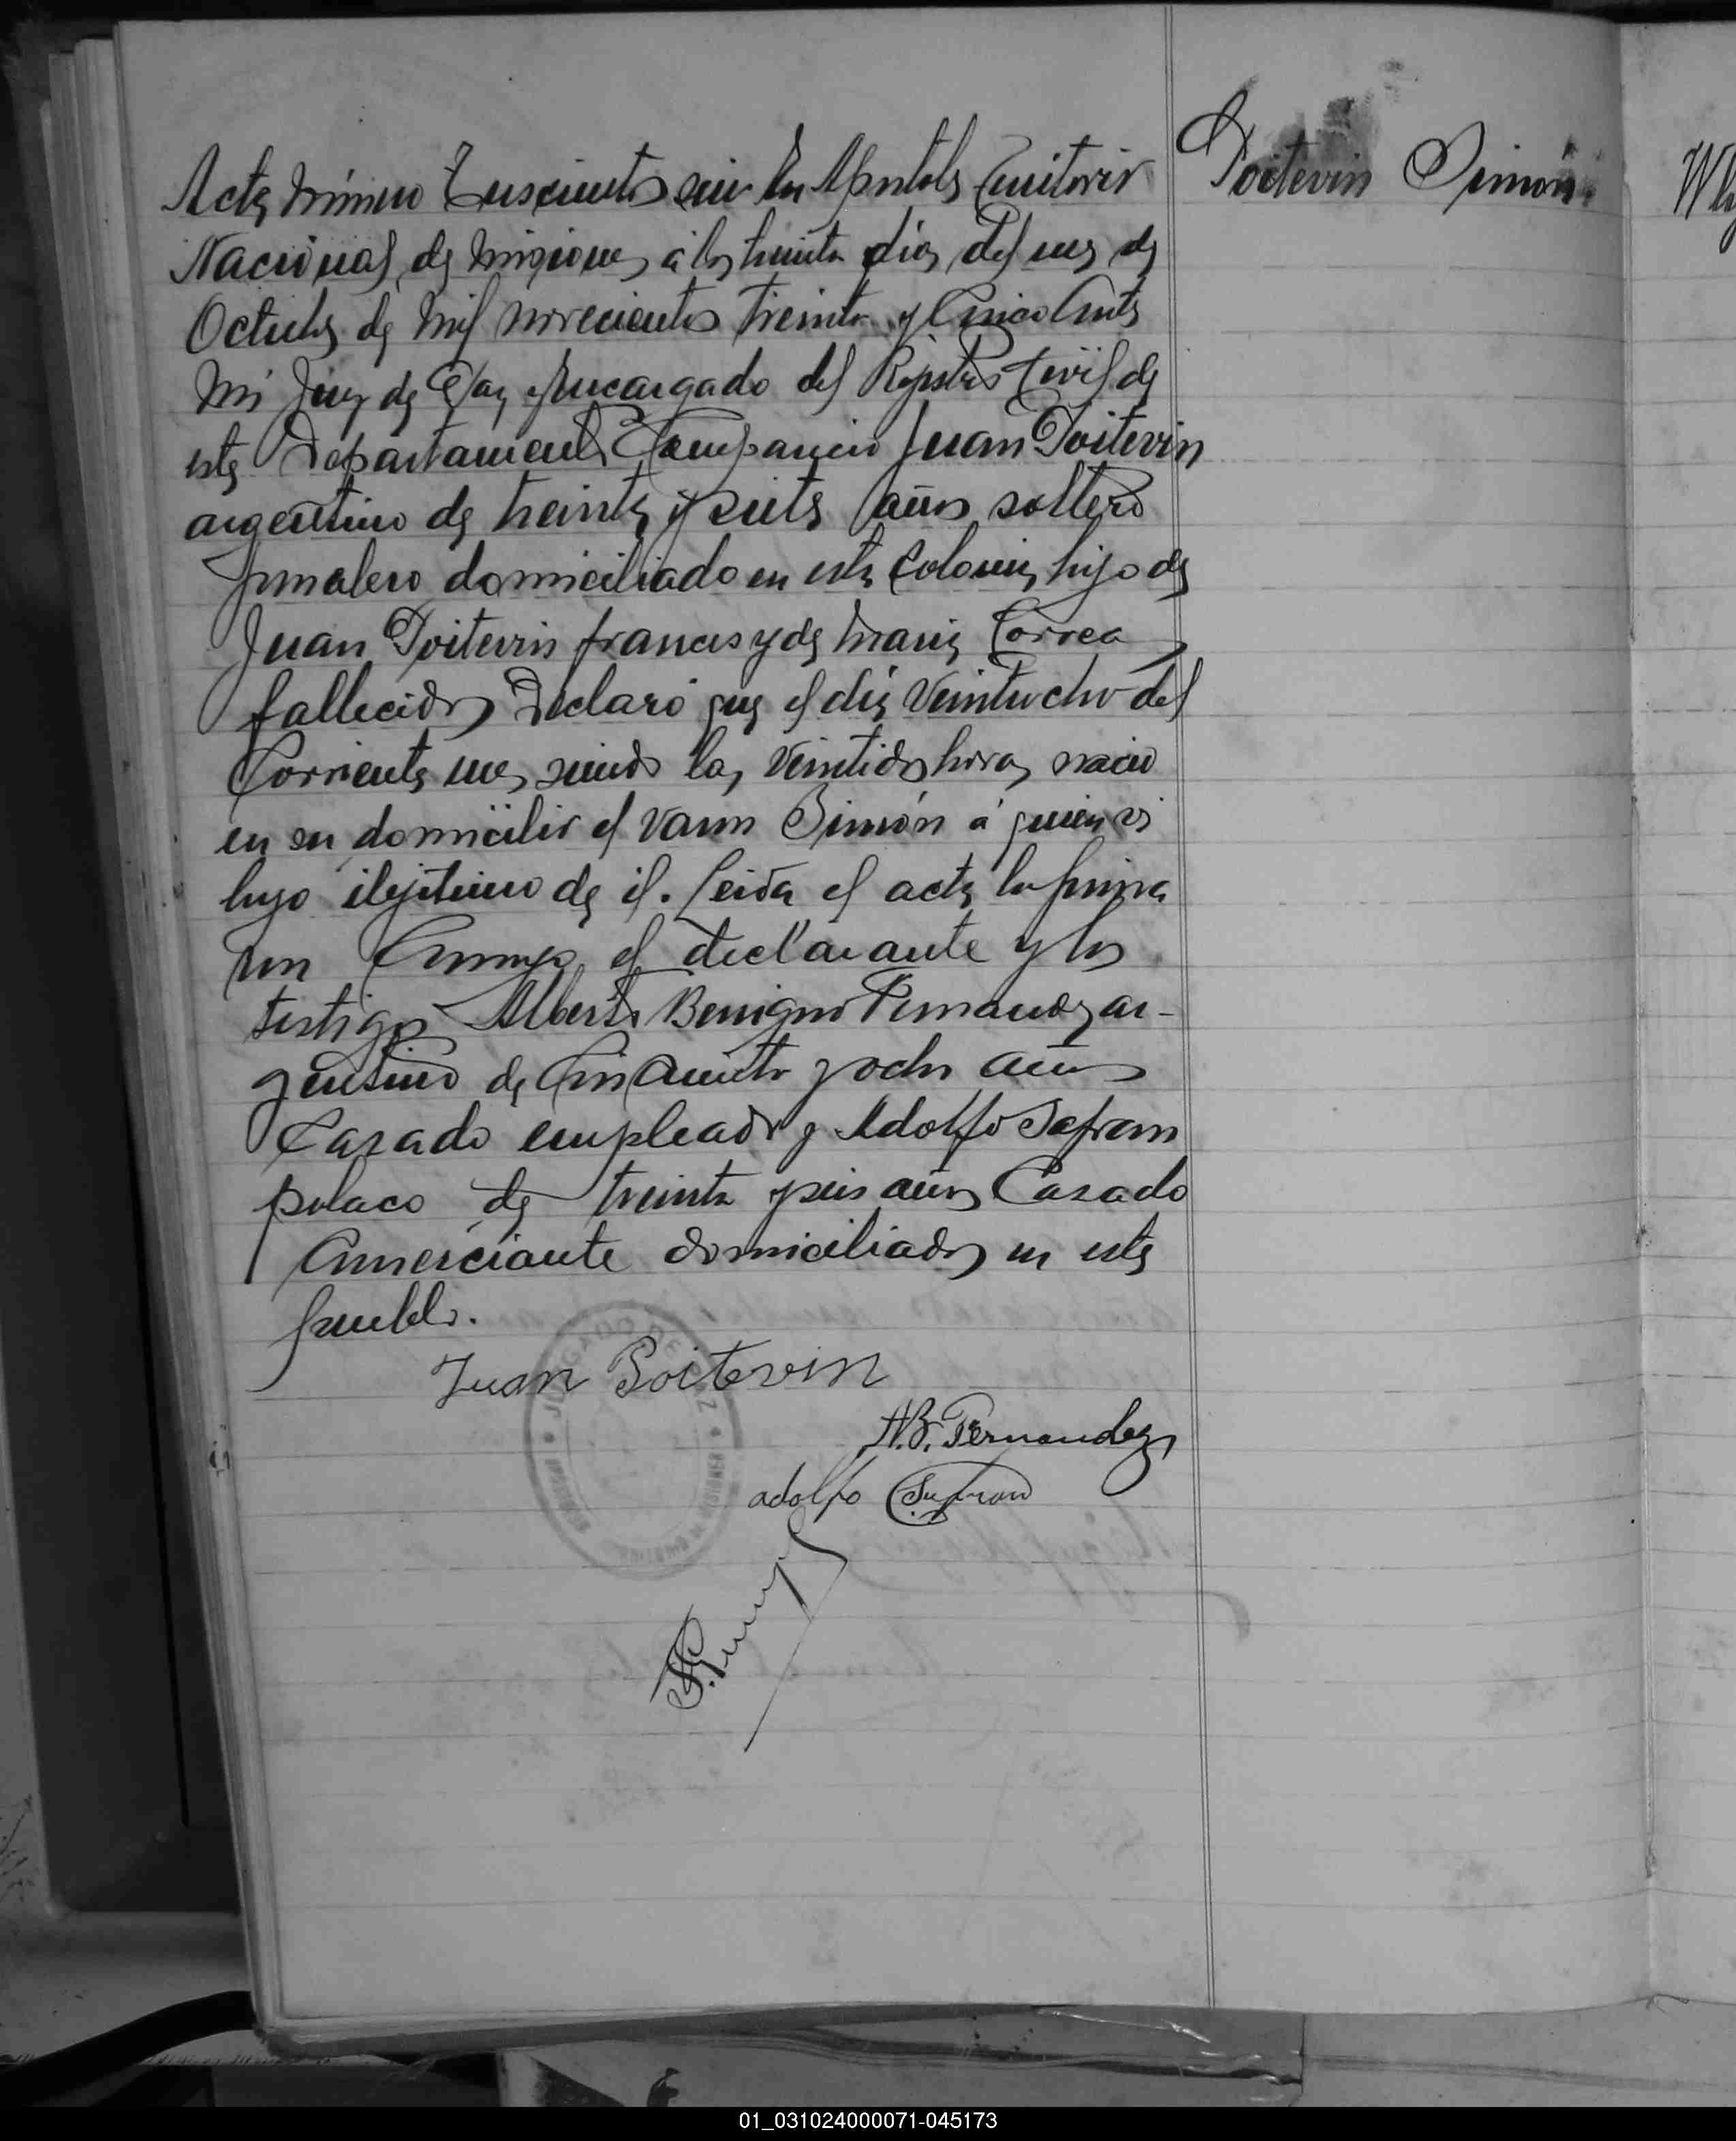 Poitevin Simón
Acta Número Trescientos seis En Apóstoles Territorio
Nacional de Misiones a los treinta días del mes de
Octubre de mil novecientos treinta y Cinco Ante
mi Juez de Paz y Encargado del Rejistro Civil de
este Departamento Compareció Juan Poitevin
argentino de treinta y siete años soltero
jornalero domiciliado en esta Colonia hijo de
Juan Poitevin frances y de Maria Correa
fallecidos Declaró que el día Veintiocho del
Corriente mes siendo las Veintidos horas nació
en su domicilio el varon Simón á quien vi
hijo ilejitimo de él. Leida el acta la firma
ron Conmigo el declarante y los
testigos Alberto Benigno Fernandez ar-
gentino de Cincuenta y ocho años
Casado empleado y Adolfo Safram
polaco de treinta y seis años Casado
Comerciante domiciliados en este
pueblo.
Juan Poitevin
A.B. Fernandez
adolfo
JUZGADO DE PAZ
01_031024000071-045173